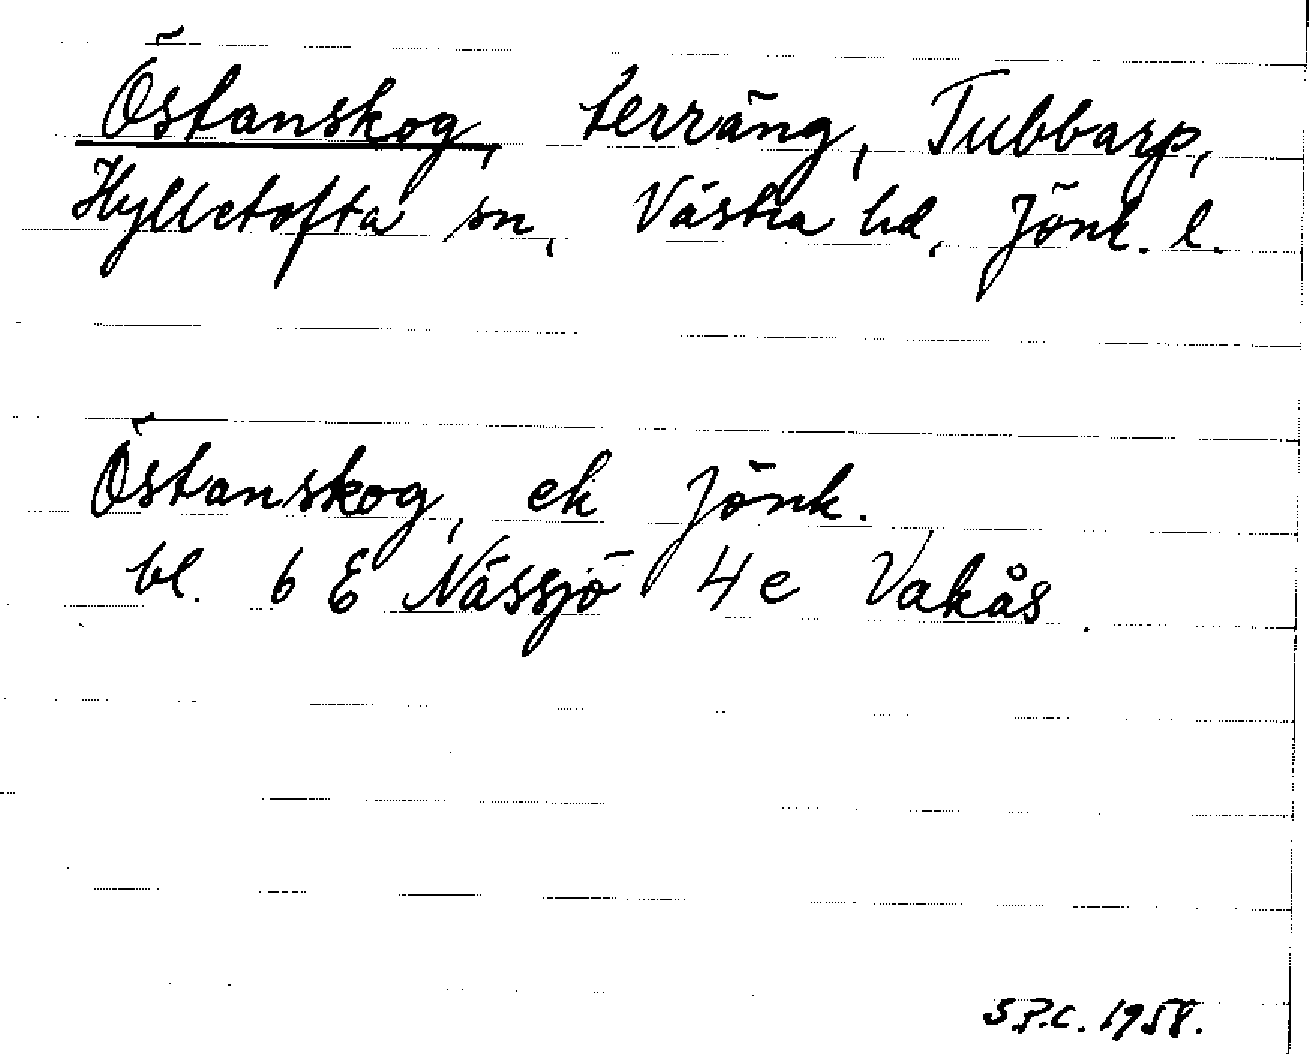 Östanskog, terräng, Tubbarp,
Hylletofta sn, Västra hd, Jönk. l.
Östanskog, ek Jönk.
bl. 6 E Nässjö 4e Vakås.
S.P.C. 1958.